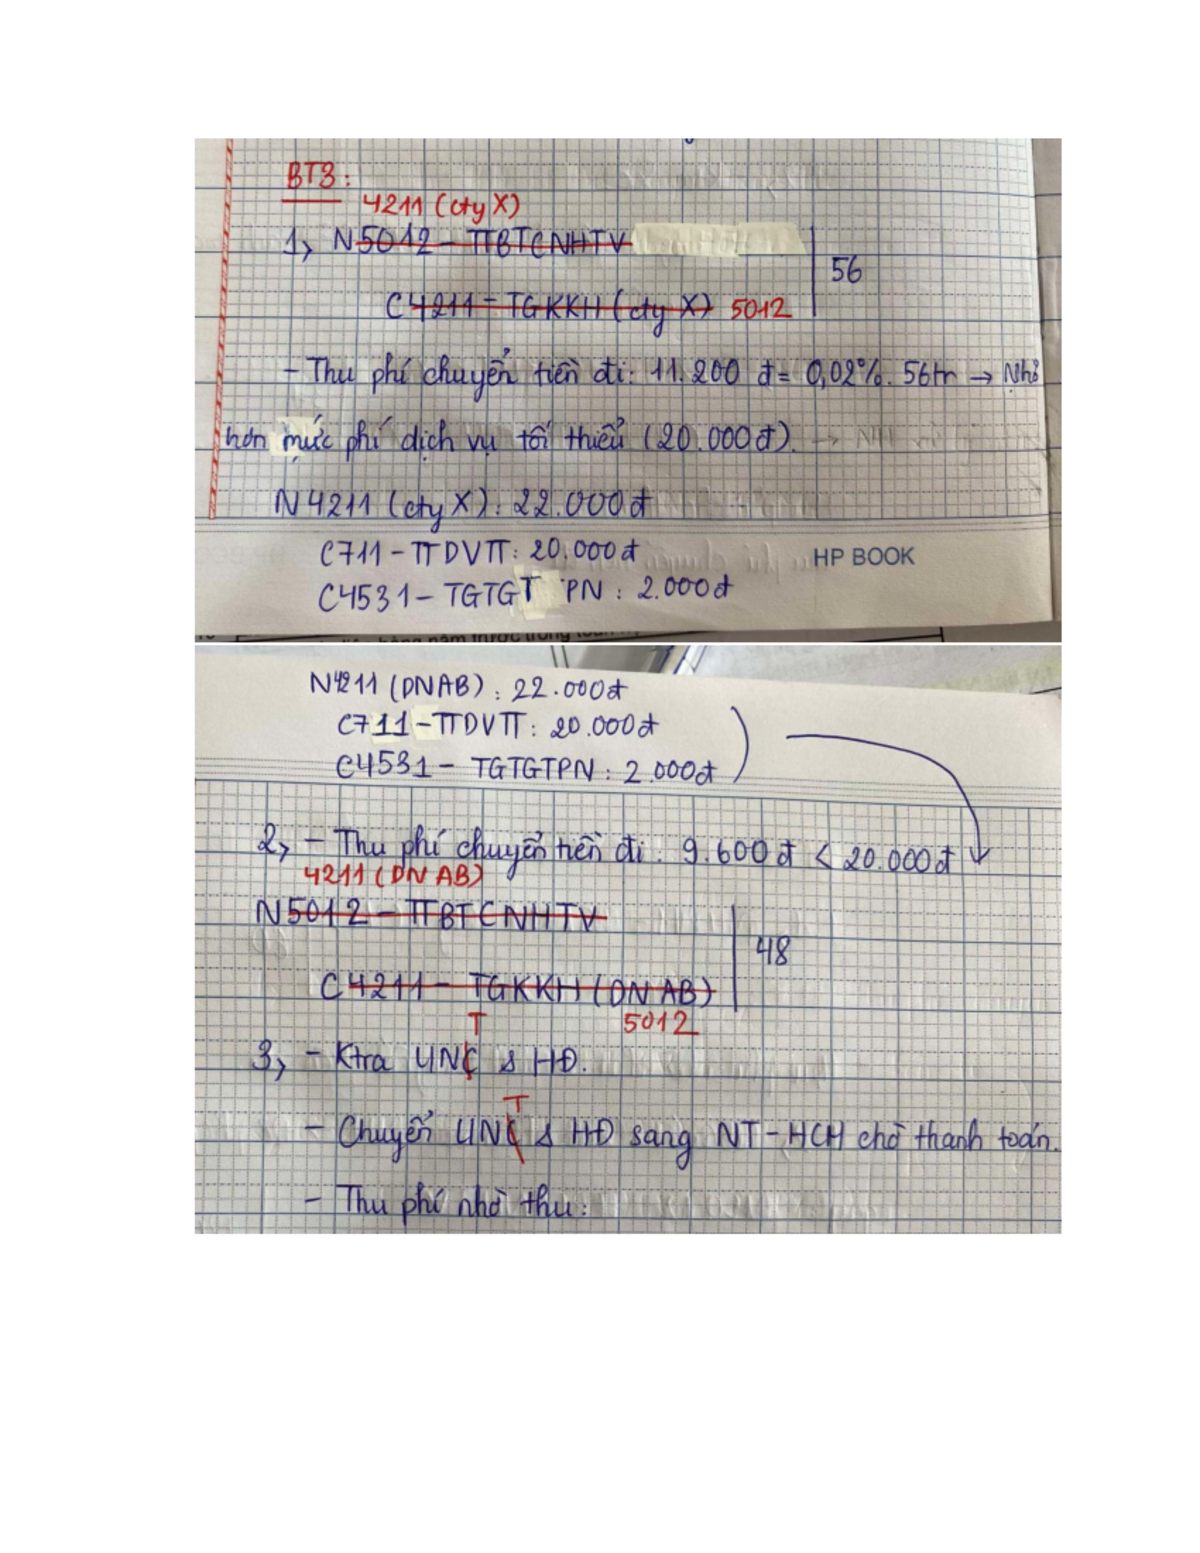 BT3:
4211 (cty X)
1, N 5012 - TTBTCNHTV
56
C 4211 - TGKKH (cty X) 5012
- Thu phí chuyển tiền đi: 11.200 đ = 0,02%. 56tr → Nhỏ
hơn mức phí dịch vụ tối thiểu (20.000đ).
N 4211 (cty X): 22.000đ
C711 - TTDVTT: 20.000đ
HP BOOK
C4531 - TGTGT PN: 2.000đ
N4211 (DNAB): 22.000đ
C711 - TTDVTT: 20.000đ
C4531 - TGTGTPN: 2.000đ
2, - Thu phí chuyển tiền đi: 9.600đ < 20.000đ
4211 (DN AB)
N5012 - TTBTCNHTV
48
C 4211 - TGKKH (DN AB)
T 5012
3, - Ktra UNC & HĐ.
T
- Chuyển UNC & HĐ sang NT-HCM chờ thanh toán.
- Thu phí nhờ thu: